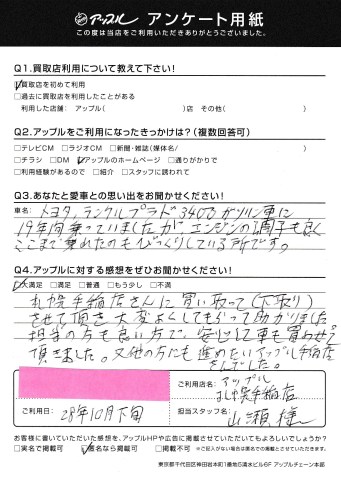 アップル アンケート用紙
この度は当店をご利用いただきありがとうございました。
Q1.買取店利用について教えて下さい!
☑買取店を初めて利用
□過去に買取店を利用したことがある
利用した店舗: アップル( )店 その他( )
Q2.アップルをご利用になったきっかけは?(複数回答可)
□テレビCM □ラジオCM □新聞・雑誌(媒体名/ )
□チラシ □DM ☑アップルのホームページ □通りがかりで
□利用経験があるので □紹介 □スタッフに誘われて
Q3.あなたと愛車との思い出をお聞かせください!
車名: トヨタ,ランクルプラド3400ガソリン車に
19年間乗っていましたが、エンジンの調子も良く
ここまで乗れたのもびっくりしている所です。
Q4.アップルに対する感想をぜひお聞かせください!
☑大満足 □満足 □普通 □もう少し □不満
札幌手稲店さんに買い取って(下取り)
させて頂き大変よくしてもらって助かりました
担当の方も良い方で、安心して車も買わせて
頂きました。又他の方にも進めたいアップル手稲店
さんでした。
ご利用店名: アップル
札幌手稲店
ご利用日: 28年10月下旬
担当スタッフ名: 山瀬様
お客様に書いていただいた感想を、アップルHPや広告に掲載させていただいてもよろしいでしょうか?
□実名で掲載可 ☑匿名なら掲載可 □掲載不可 ※ご記入がない場合は匿名での掲載とさせていただきます。
東京都千代田区神田岩本町1番地5清水ビル6F アップルチェーン本部